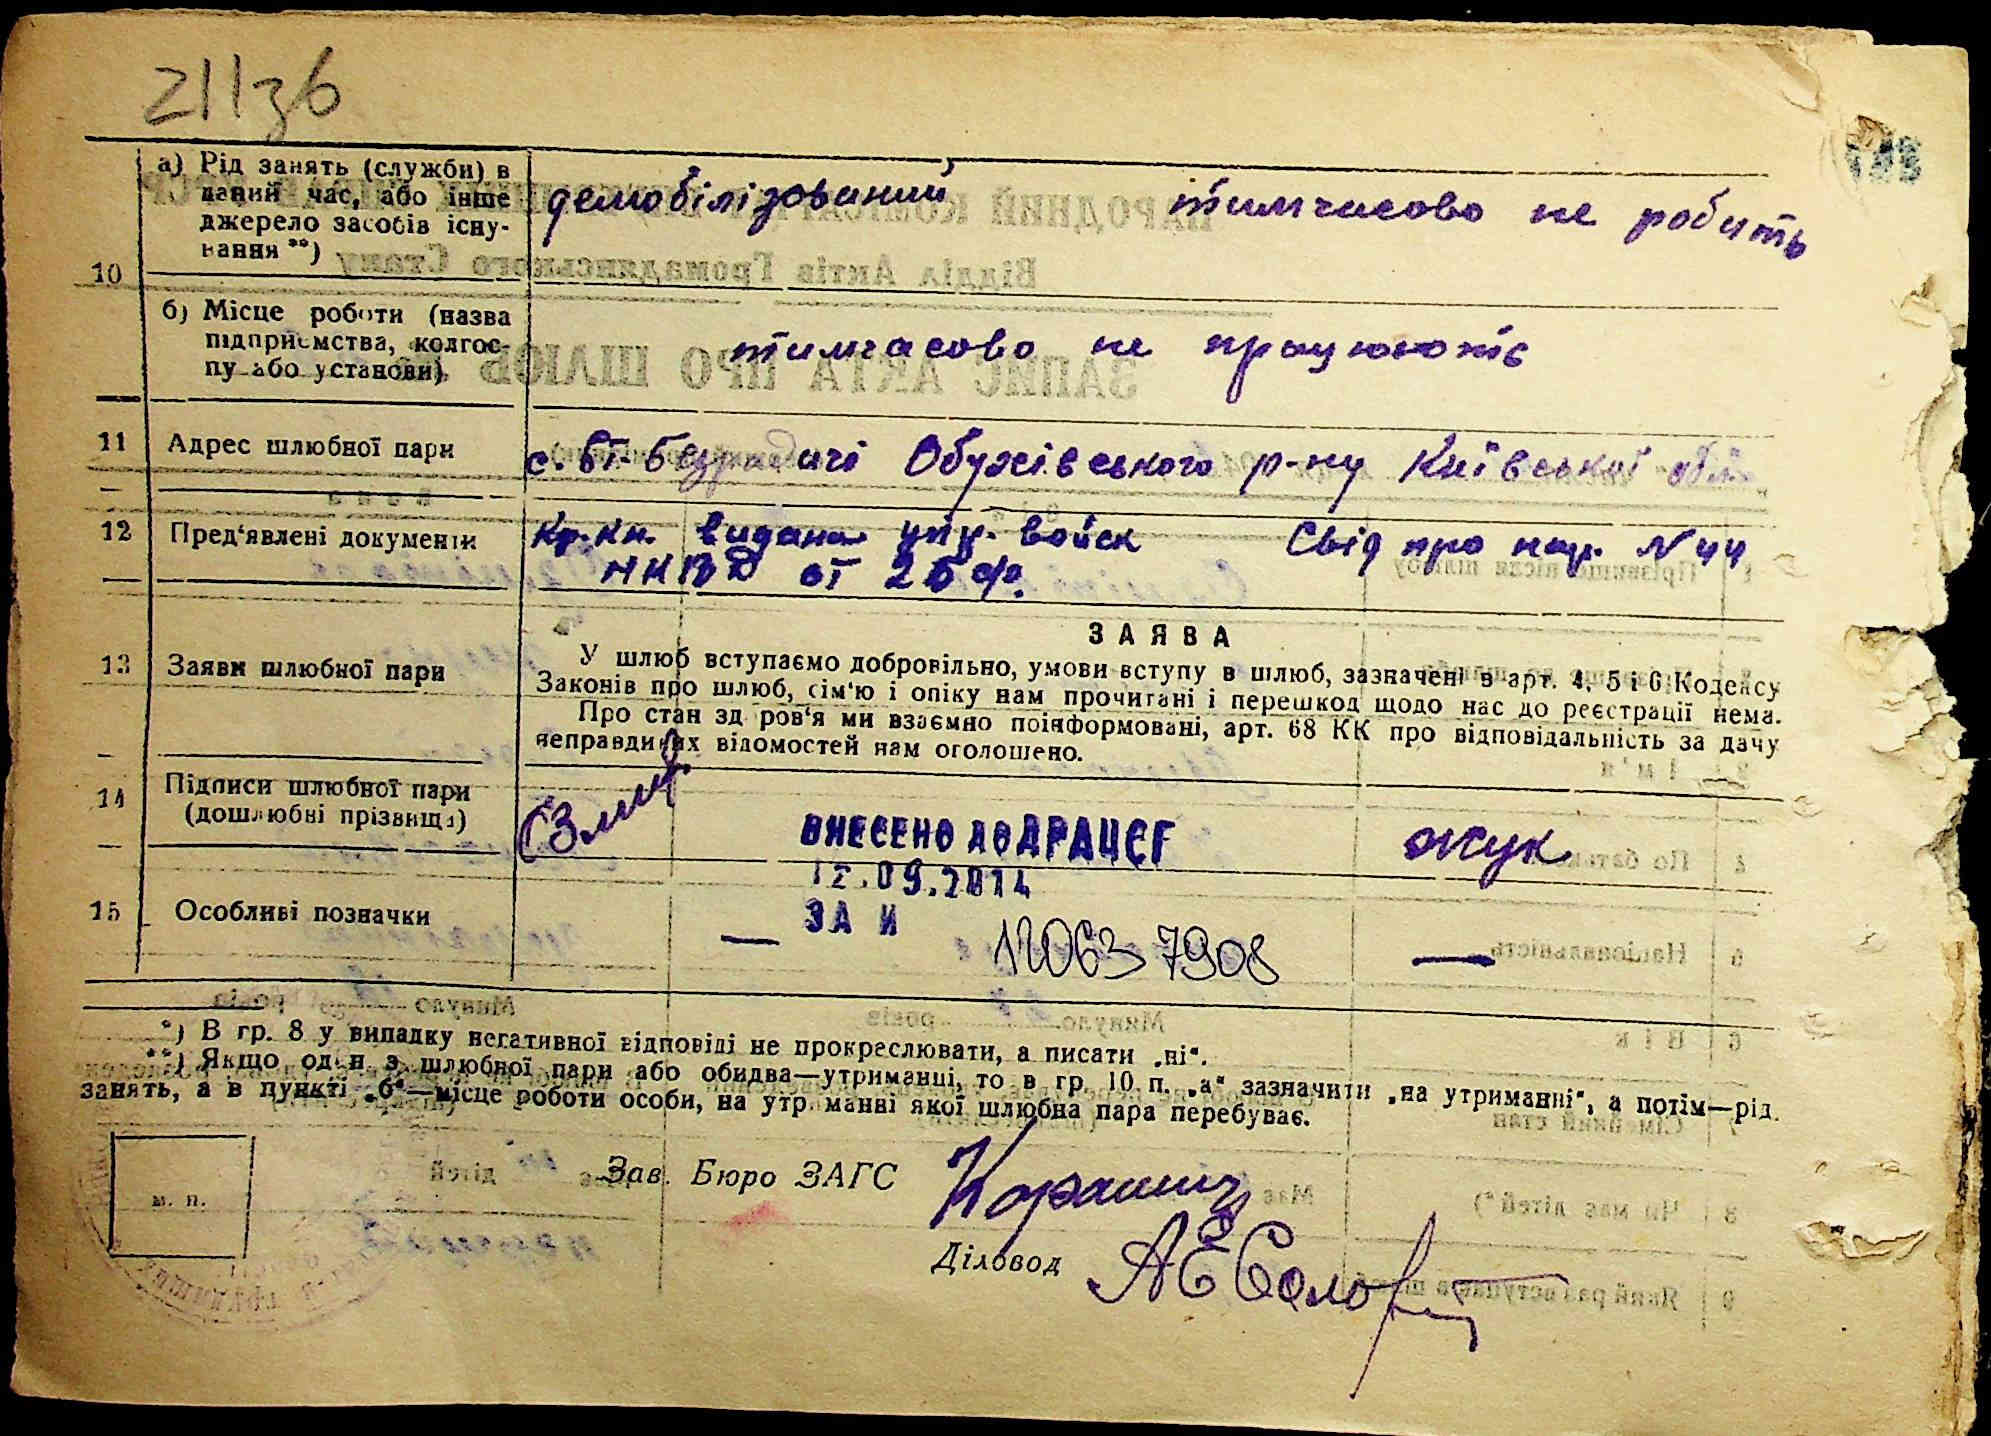 21136
10
а) Рід занять (служби) в
даний час, або інше
джерело засобів існу-
вання **)
демобілізований
тимчасово не робить
б) Місце роботи (назва
підприємства, колгос-
пу або установи)
тимчасово не працюють
11
Адрес шлюбної пари
с. Вт-Безрадичі Обухівського р-ну Київської обл.
12
Пред'явлені документи
Кр. кн. видана упр. войск
НКВД от 26 ф.
Свід про нар. N 44
13
Заяви шлюбної пари
ЗАЯВА
У шлюб вступаємо добровільно, умови вступу в шлюб, зазначені в арт. 4, 5 і 6 Кодексу
Законів про шлюб, сім'ю і опіку нам прочитані і перешкод щодо нас до реєстрації нема.
Про стан здоров'я ми взаємно поінформовані, арт. 68 КК про відповідальність за дачу
неправдивих відомостей нам оголошено.
14
Підписи шлюбної пари
(дошлюбні прізвища)
Жук
ВНЕСЕНО ДО ДРАЦСГ
12.09.2014
ЗА N
12063 7908
15
Особливі позначки
—
—
*) В гр. 8 у випадку негативної відповіді не прокреслювати, а писати „ні“.
**) Якщо один з шлюбної пари або обидва—утриманці, то в гр. 10 п. „а“ зазначити „на утриманні“, а потім—рід
занять, а в пункті „б“—місце роботи особи, на утриманні якої шлюбна пара перебуває.
м. п.
Зав. Бюро ЗАГС
Діловод